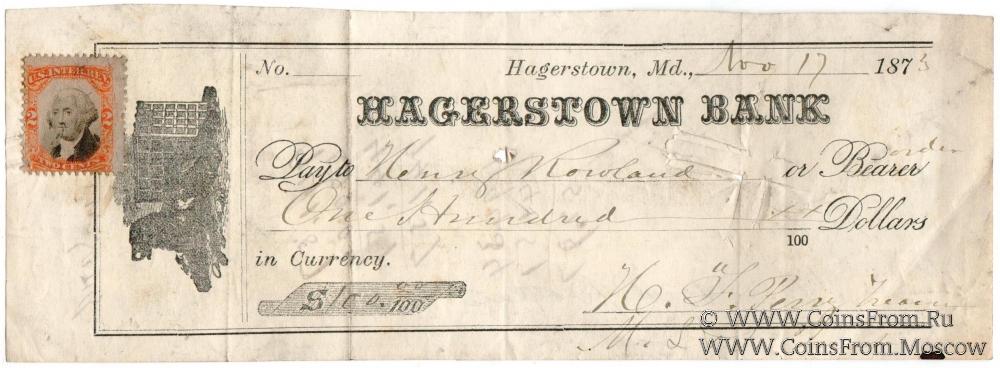 U.S. INTER. REV.
2 2
No.
Hagerstown, Md., Nov 17 1873
HAGERSTOWN BANK
order
Pay to Henry Rowland or Bearer
One Hundred Dollars
100
in Currency.
$100. 00/100
© WWW.CoinsFrom.Ru
WWW.CoinsFrom.Moscow